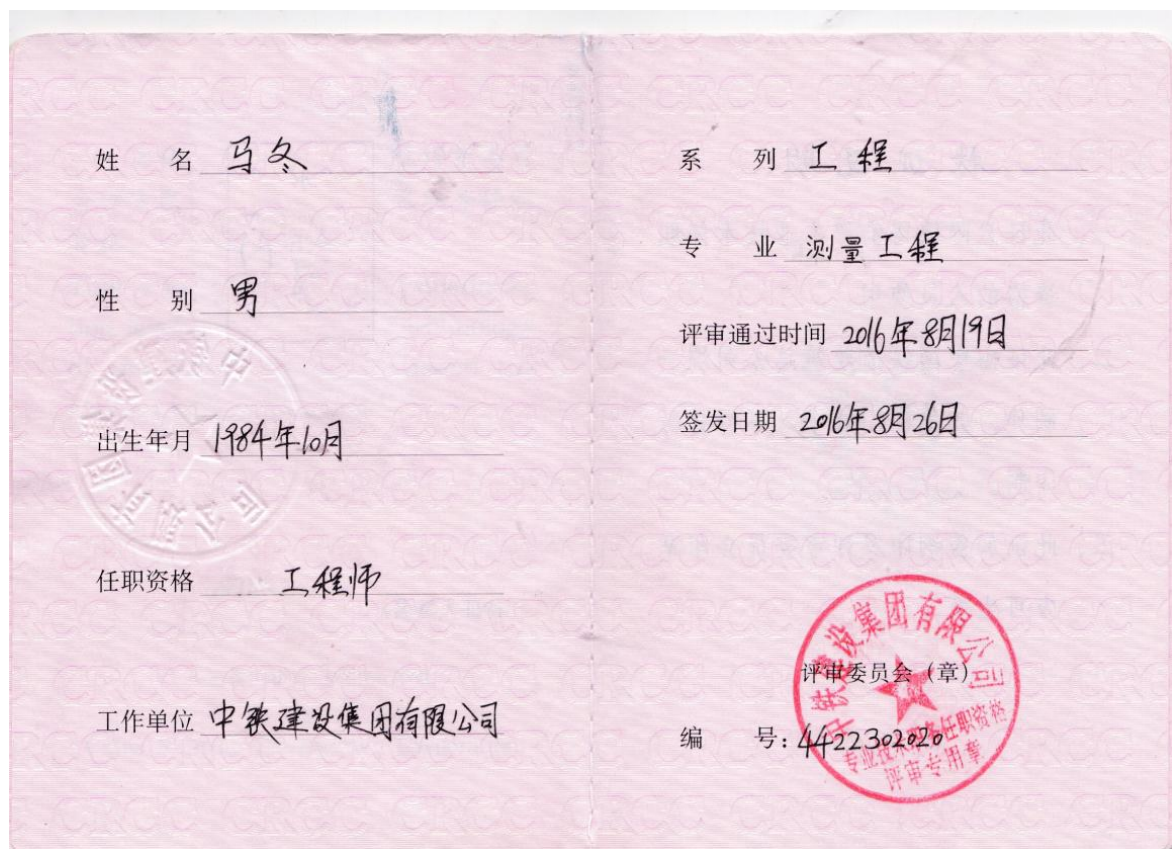 姓 名 马冬
性 别 男
出生年月 1984年10月
任职资格 工程师
工作单位 中铁建设集团有限公司
系 列 工程
专 业 测量工程
评审通过时间 2016年8月19日
签发日期 2016年8月26日
评审委员会（章）
编 号：4422302020
中铁建设集团有限公司
专业技术职务任职资格
评审专用章
CRCC